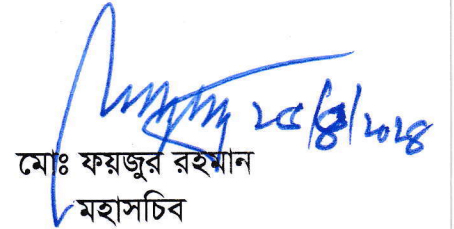 ২৫/৪/২০২৪
মোঃ ফয়জুর রহমান
মহাসচিব